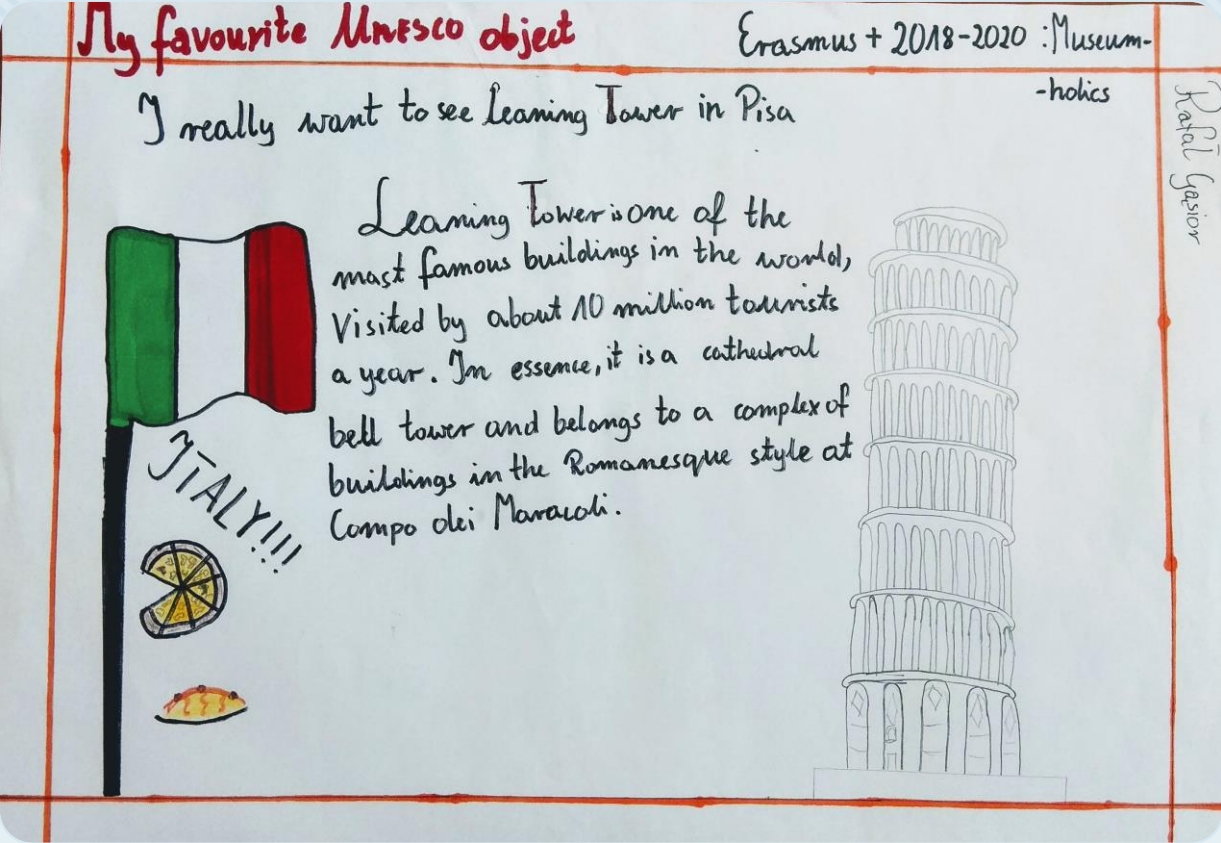 My favourite UNESCO object
Erasmus + 2018-2020 : Museum-
-holics
Rafał Gąsior
I really want to see Leaning Tower in Pisa
Leaning Tower is one of the
most famous buildings in the world,
Visited by about 10 million tourists
a year. In essence, it is a cathedral
bell tower and belongs to a complex of
buildings in the Romanesque style at
Campo dei Maracoli.
ITALY!!!